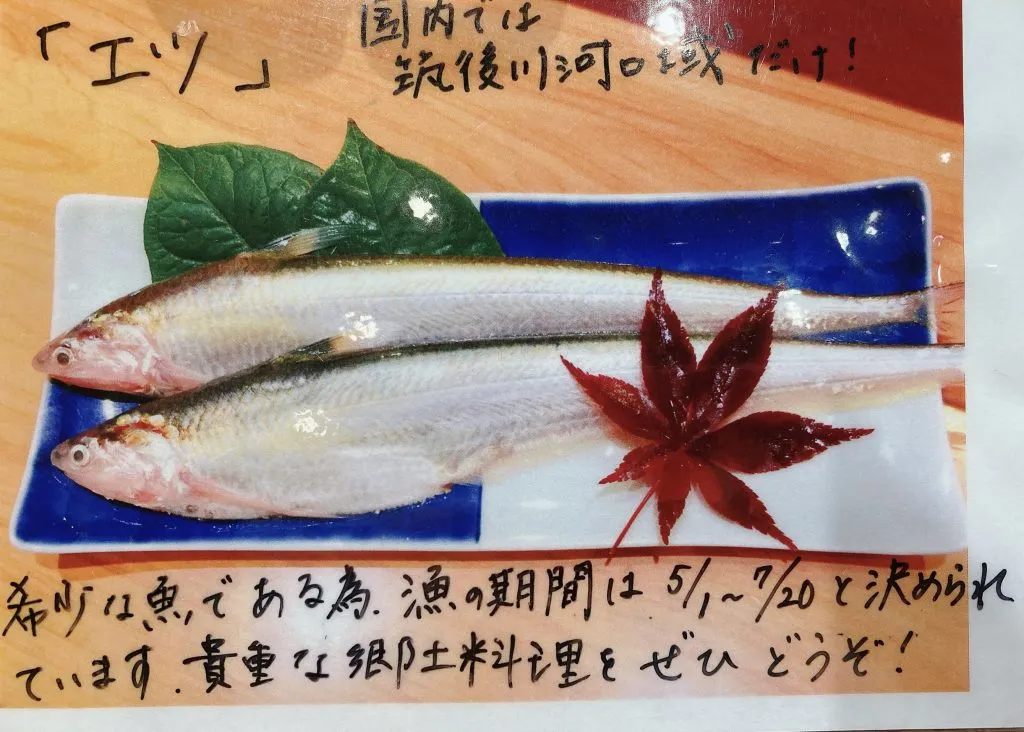 「エツ」
国内では
筑後川河口域だけ!
希少な魚である為、漁の期間は5/1~7/20と決められ
ています。貴重な郷土料理をぜひどうぞ!